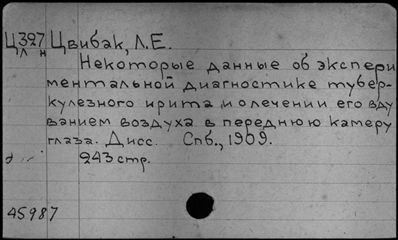 Ц327 Цвибак, Л.Е.
Л н
Некоторые данные об экспери
ментальной диагностике тубер-
кулезного ирита и о лечении его вду
ванием воздуха в переднюю камеру
глаза. Дисс. Спб., 1909.
243 стр.
45987